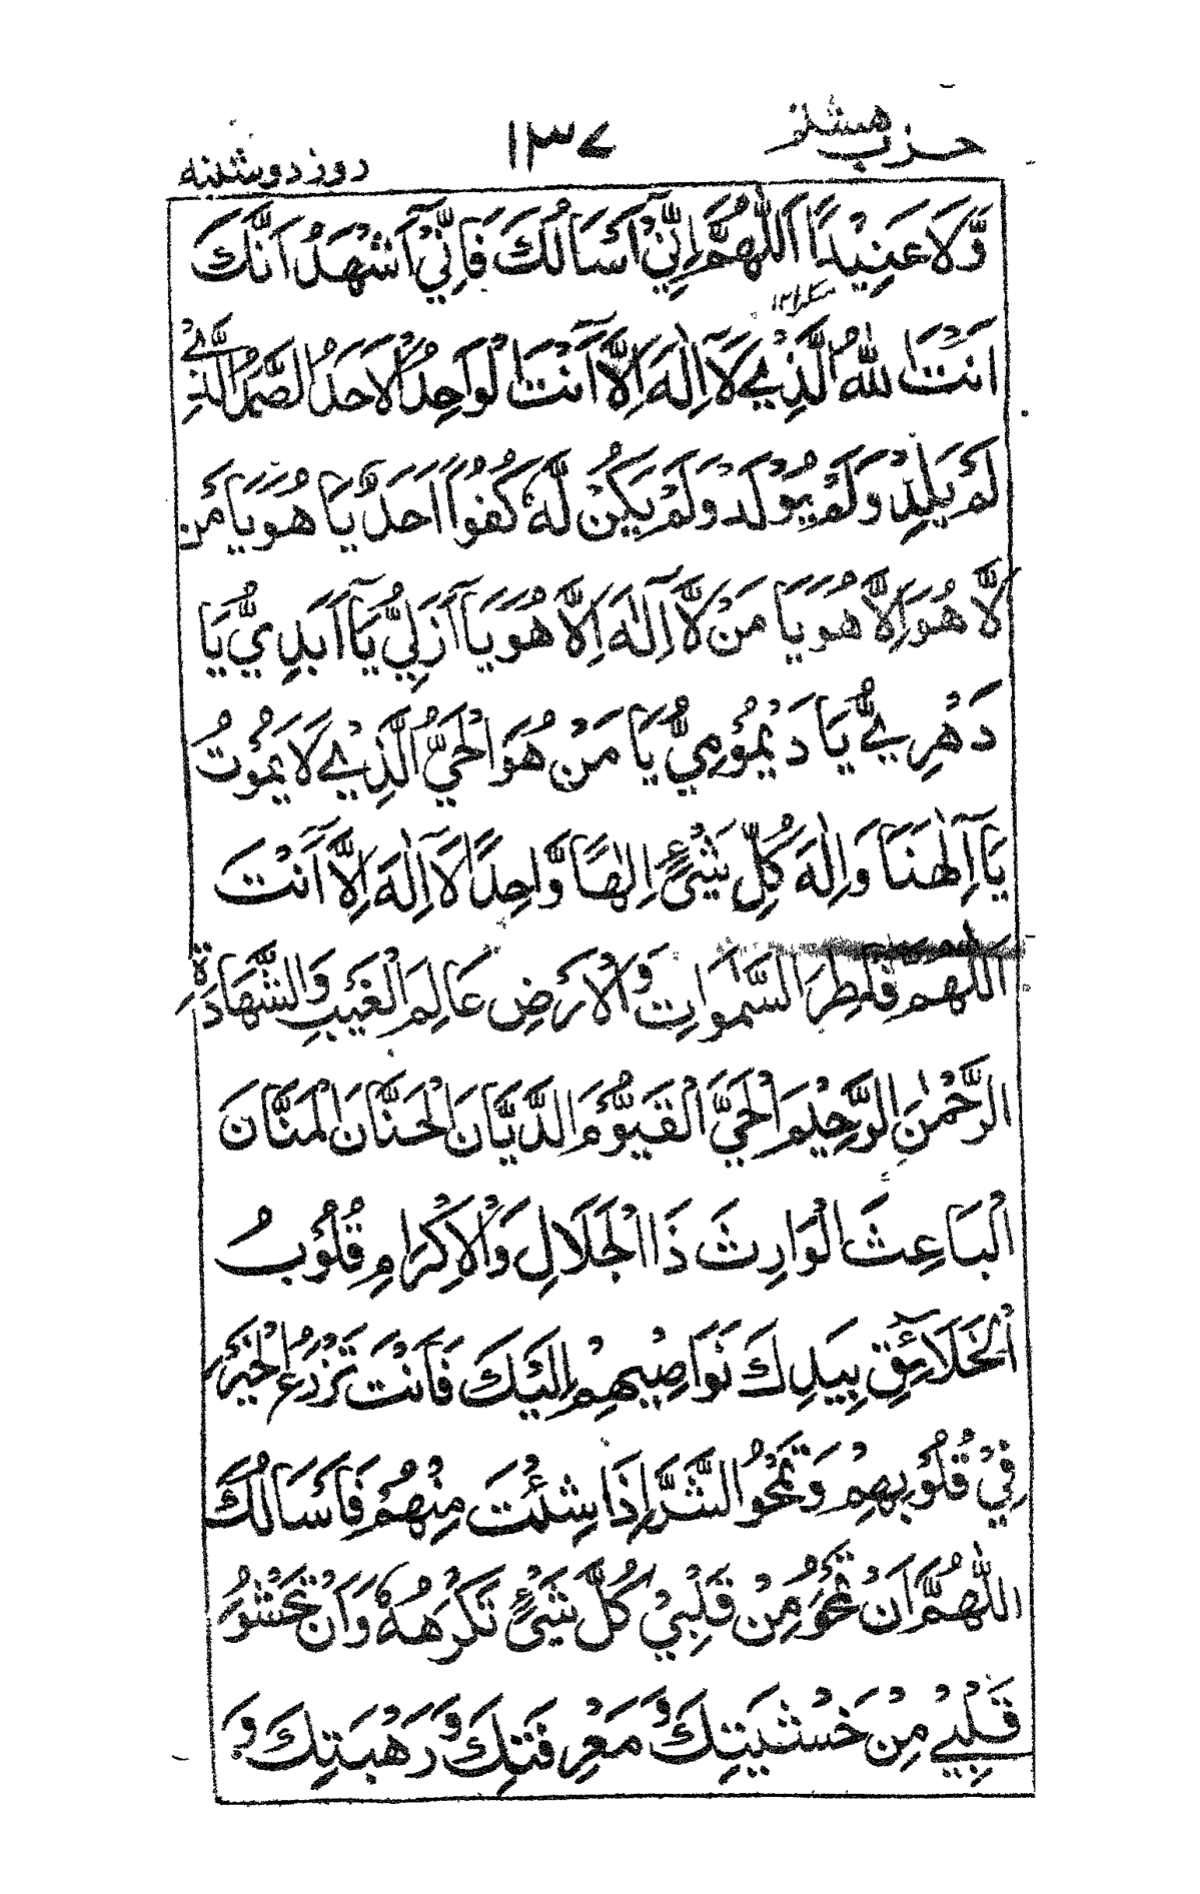 حزب هشتم ١٣٧ روز دوشنبه
وَّلَا عَنِيْدًا اَللّٰهُمَّ اِنِّيْٓ اَسْاَلُكَ فَاِنِّيْٓ اَشْهَدُ اَنَّكَ
اَنْتَ اللّٰهُ الَّذِيْ لَآ اِلٰهَ اِلَّآ اَنْتَ الْوَاحِدُ الْاَحَدُ الصَّمَدُ الَّذِيْ
لَمْ يَلِدْ وَلَمْ يُوْلَدْ وَلَمْ يَكُنْ لَّهٗ كُفُوًا اَحَدٌ يَا هُوَ يَا مَنْ
لَّا هُوَ اِلَّا هُوَ يَا مَنْ لَّآ اِلٰهَ اِلَّا هُوَ يَآ اَزَلِيُّ يَآ اَبَدِيُّ يَا
دَهْرِيُّ يَا دَيْمُوْمِيُّ يَا مَنْ هُوَ الْحَيُّ الَّذِيْ لَا يَمُوْتُ
يَآ اِلٰهَنَا وَاِلٰهَ كُلِّ شَيْءٍ اِلٰهًا وَّاحِدًا لَآ اِلٰهَ اِلَّآ اَنْتَ
اَللّٰهُمَّ فَاطِرَ السَّمٰوَاتِ وَالْاَرْضِ عَالِمَ الْغَيْبِ وَالشَّهَادَةِ
الرَّحْمٰنَ الرَّحِيْمَ الْحَيَّ الْقَيُّوْمَ الدَّيَّانَ الْحَنَّانَ الْمَنَّانَ
الْبَاعِثَ الْوَارِثَ ذَا الْجَلَالِ وَالْاِكْرَامِ قُلُوْبُ
الْخَلَآئِقِ بِيَدِكَ نَوَاصِيْهِمْ اِلَيْكَ فَاَنْتَ تَزْرَعُ الْخَيْرَ
فِيْ قُلُوْبِهِمْ وَتَمْحُو الشَّرَّ اِذَا شِئْتَ مِنْهُمْ فَاَسْاَلُكَ
اللّٰهُمَّ اَنْ تَمْحُوَ مِنْ قَلْبِيْ كُلَّ شَيْءٍ تَكْرَهُهٗ وَاَنْ تَحْشُوَ
قَلْبِيْ مِنْ خَشْيَتِكَ وَمَعْرِفَتِكَ وَرَهْبَتِكَ وَ